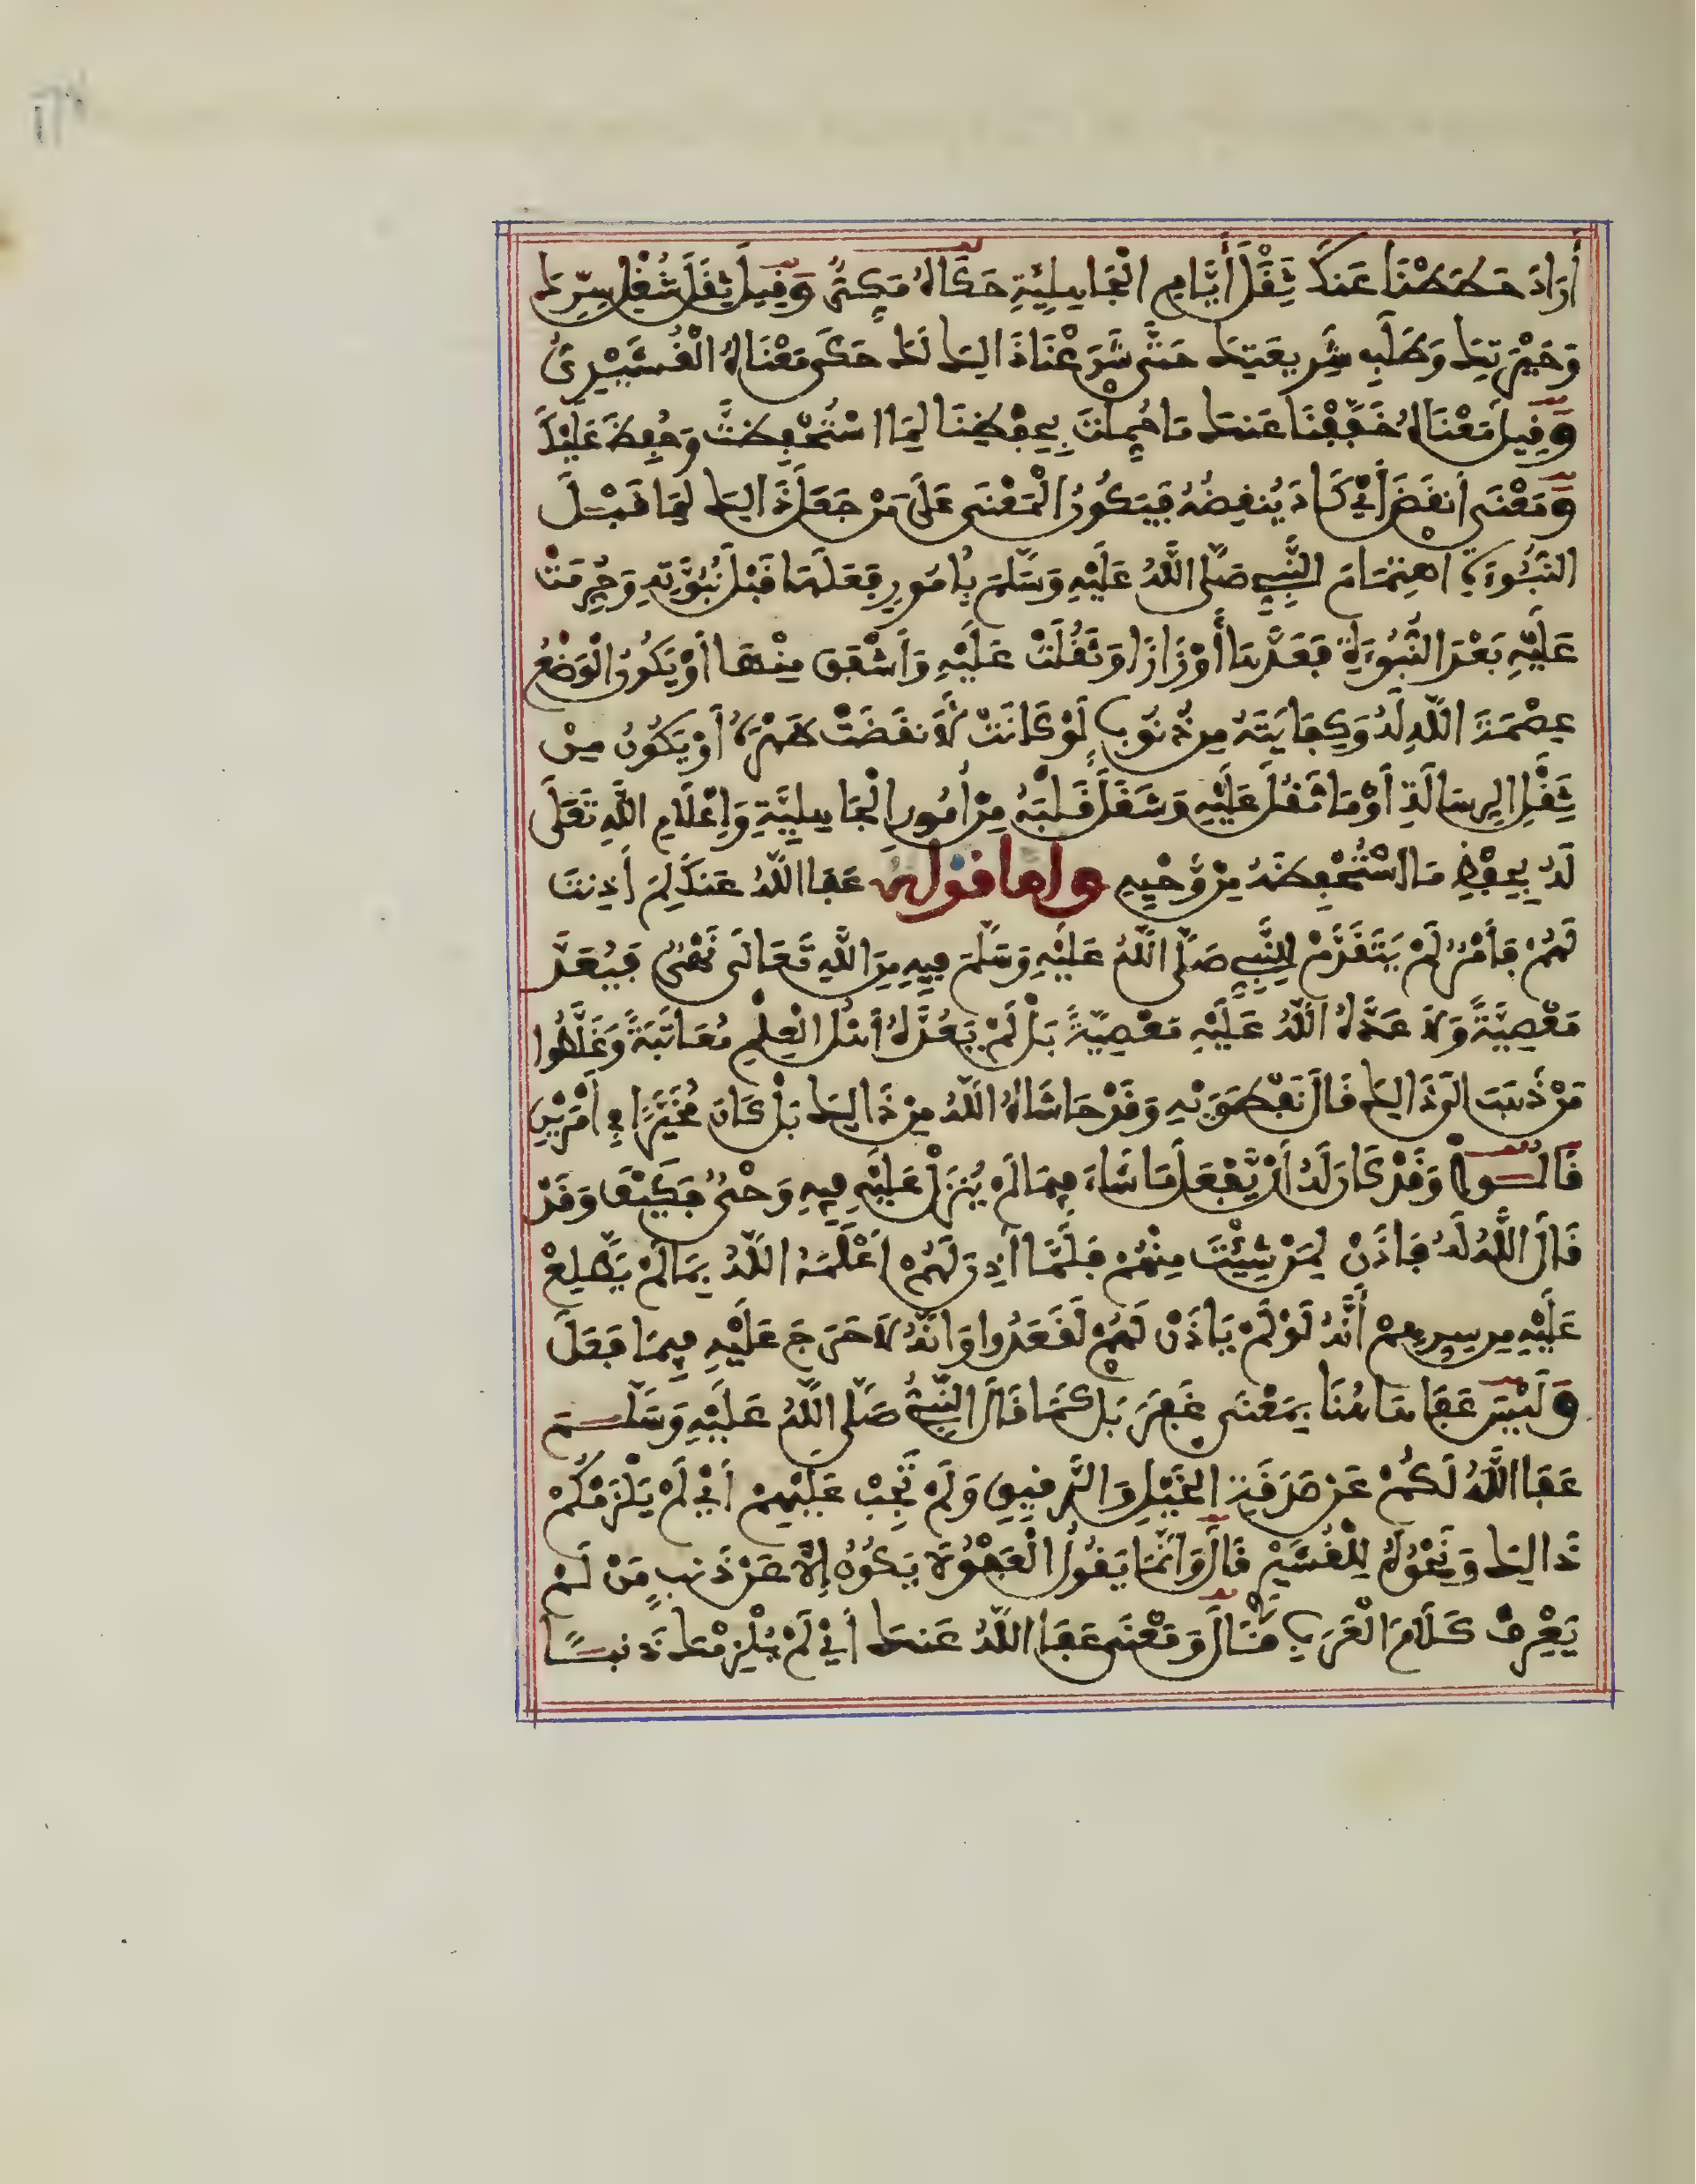 أَرَادَ حَطَطْنَا عَنكَ ثِقْلَ أَيَّامِ الْجَاهِلِيَّةِ حَكَاهُ مَكِّىٌّ وَقِيلَ ثِقَلَ شُغْلِ سِرِّكَ
وَحَيْرَتِكَ وَطَلَبِ شَرِيعَتِكَ حَتَّى شَرَعْنَا ذَالِكَ لَكَ حَكَى مَعْنَاهُ الْقُشَيْرِىُّ
وَقِيلَ مَعْنَاهُ خَفَّفْنَا عَنكَ مَا حُمِّلْتَ بِحِفْظِنَا لِمَا اسْتُحْفِظْتَ وَحُفِظَ عَلَيْكَ
وَمَعْنَى أَنقَضَ أَيْ كَادَ يُنقِضُهُ فَيَكُونُ الْمَعْنَى عَلَى مَنْ جَعَلَ ذَالِكَ لِمَا قَبْلَ
النُّبُوءَةِ اهْتِمَامَ النَّبِيِّ صَلَّى اللَّهُ عَلَيْهِ وَسَلَّمَ بِأُمُورٍ فَعَلَهَا قَبْلَ نُبُوَّتِهِ وَحُرِّمَتْ
عَلَيْهِ بَعْدَ النُّبُوءَةِ فَعَدَّهَا أَوْزَارًا وَثَقُلَتْ عَلَيْهِ وَأَشْفَقَ مِنْهَا أَوْ يَكُونُ الْوَضْعُ
عِصْمَةَ اللَّهِ لَهُ وَكِفَايَتَهُ مِن ذُنُوبٍ لَوْ كَانَتْ لَأَنقَضَتْ ظَهْرَهُ أَوْ يَكُونُ مِنْ
ثِقْلِ الرِّسَالَةِ أَوْ مَا ثَقُلَ عَلَيْهِ وَشَغَلَ قَلْبَهُ مِنْ أُمُورِ الْجَاهِلِيَّةِ وَإِعْلَامِ اللَّهِ تَعَلَى
لَهُ بِحِفْظِ مَا اسْتُحْفِظَهُ مِنْ وَّحْيِهِ وأما قوله عَفَا اللَّهُ عَنكَ لِمَ أَذِنتَ
لَهُمْ فَأَمْرٌ لَمْ يَتَقَدَّمْ لِلنَّبِيِّ صَلَّى اللَّهُ عَلَيْهِ وَسَلَّمَ فِيهِ مِنَ اللَّهِ تَعَالَى نَهْىٌ فَيُعَدَّ
مَعْصِيَّةً وَلَا عَدَّهُ اللَّهُ عَلَيْهِ مَعْصِيَّةً بَلْ لَمْ يَعُدَّهُ أَهْلُ الْعِلْمِ مُعَاتَبَةً وَغَلَّطُوا
مَنْ ذَهَبَ إِلَى ذَالِكَ قَالَ نَفْطَوَيْهِ وَقَدْ حَاشَاهُ اللَّهُ مِن ذَالِكَ بَلْ كَانَ مُخَيَّرًا فِي أَمْرَيْنِ
قَالُوا وَقَدْ كَانَ لَهُ أَنْ يَّفْعَلَ مَا شَاءَ فِيمَا لَمْ يُنَزَلْ عَلَيْهِ فِيهِ وَحْىٌ فَكَيْفَ وَقَدْ
قَالَ اللَّهُ لَهُ فَاذَنْ لِمَنْ شِئْتَ مِنْهُمْ فَلَمَّا أَذِنَ لَهُمْ أَعْلَمَهُ اللَّهُ بِمَا لَمْ يَطَّلِعْ
عَلَيْهِ مِن سِرِّهِمْ أَنَّهُ لَوْ لَمْ يَاذَنْ لَهُمْ لَقَعَدُوا وَأَنَّهُ لَا حَرَجَ عَلَيْهِ فِيمَا فَعَلَ
وَلَيْسَ عَفَا هَاهُنَا بِمَعْنَى غَفَرَ بَل كَمَا قَالَ النَّبِيُّ صَلَّى اللَّهُ عَلَيْهِ وَسَلَّمَ
عَفَا اللَّهُ لَكُمْ عَنْ صَدَقَةِ الْخَيْلِ وَالرَّقِيقِ وَلَمْ تَجِبْ عَلَيْهِمْ أَيْ لَمْ يَلْزَمْكُمْ
ذَالِكَ وَنَحْوُهُ لِلْقُشَيْرِ قَالَ وَإِنَّمَا يَقُولُ الْعَفْوُ لَا يَكُونُ إِلَّا عَن ذَنبٍ مَنْ لَمْ
يَعْرِفْ كَلَامَ الْعَرَبِ قَالَ وَمَعْنَى عَفَا اللَّهُ عَنكَ أَيْ لَمْ يُلْزِمْكَ ذَنبًا